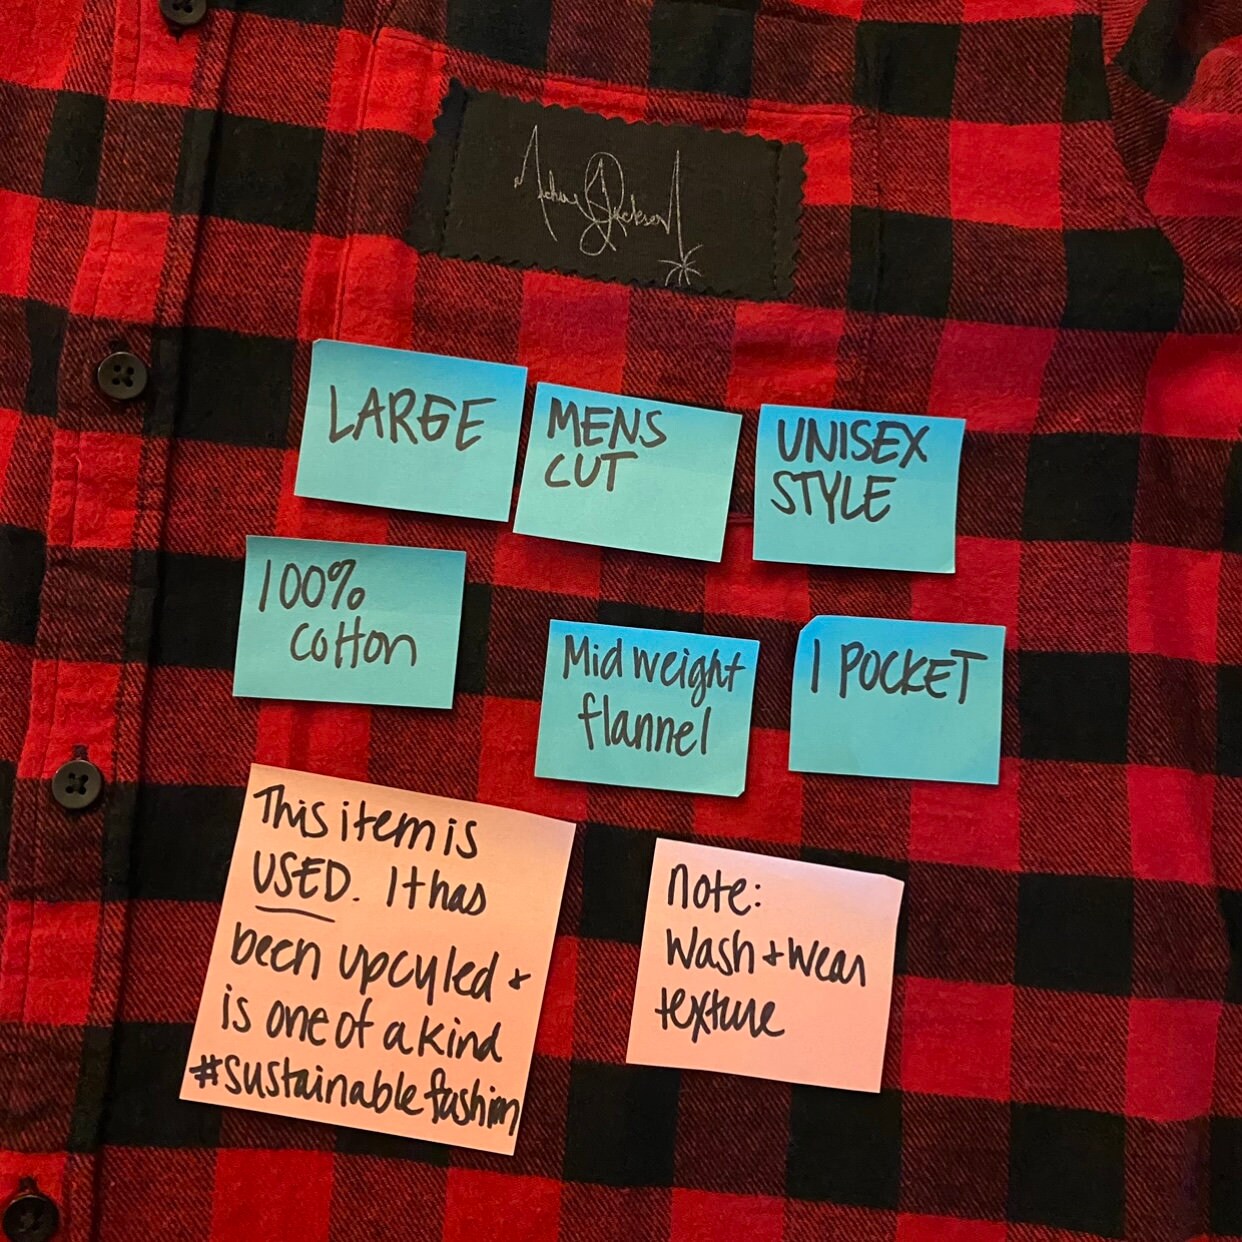 Michael Jackson
LARGE
MENS
CUT
UNISEX
STYLE
100%
cotton
Midweight
flannel
1 POCKET
This item is
USED. It has
been upcyled +
is one of a kind
#sustainablefashion
note:
wash + wear
texture